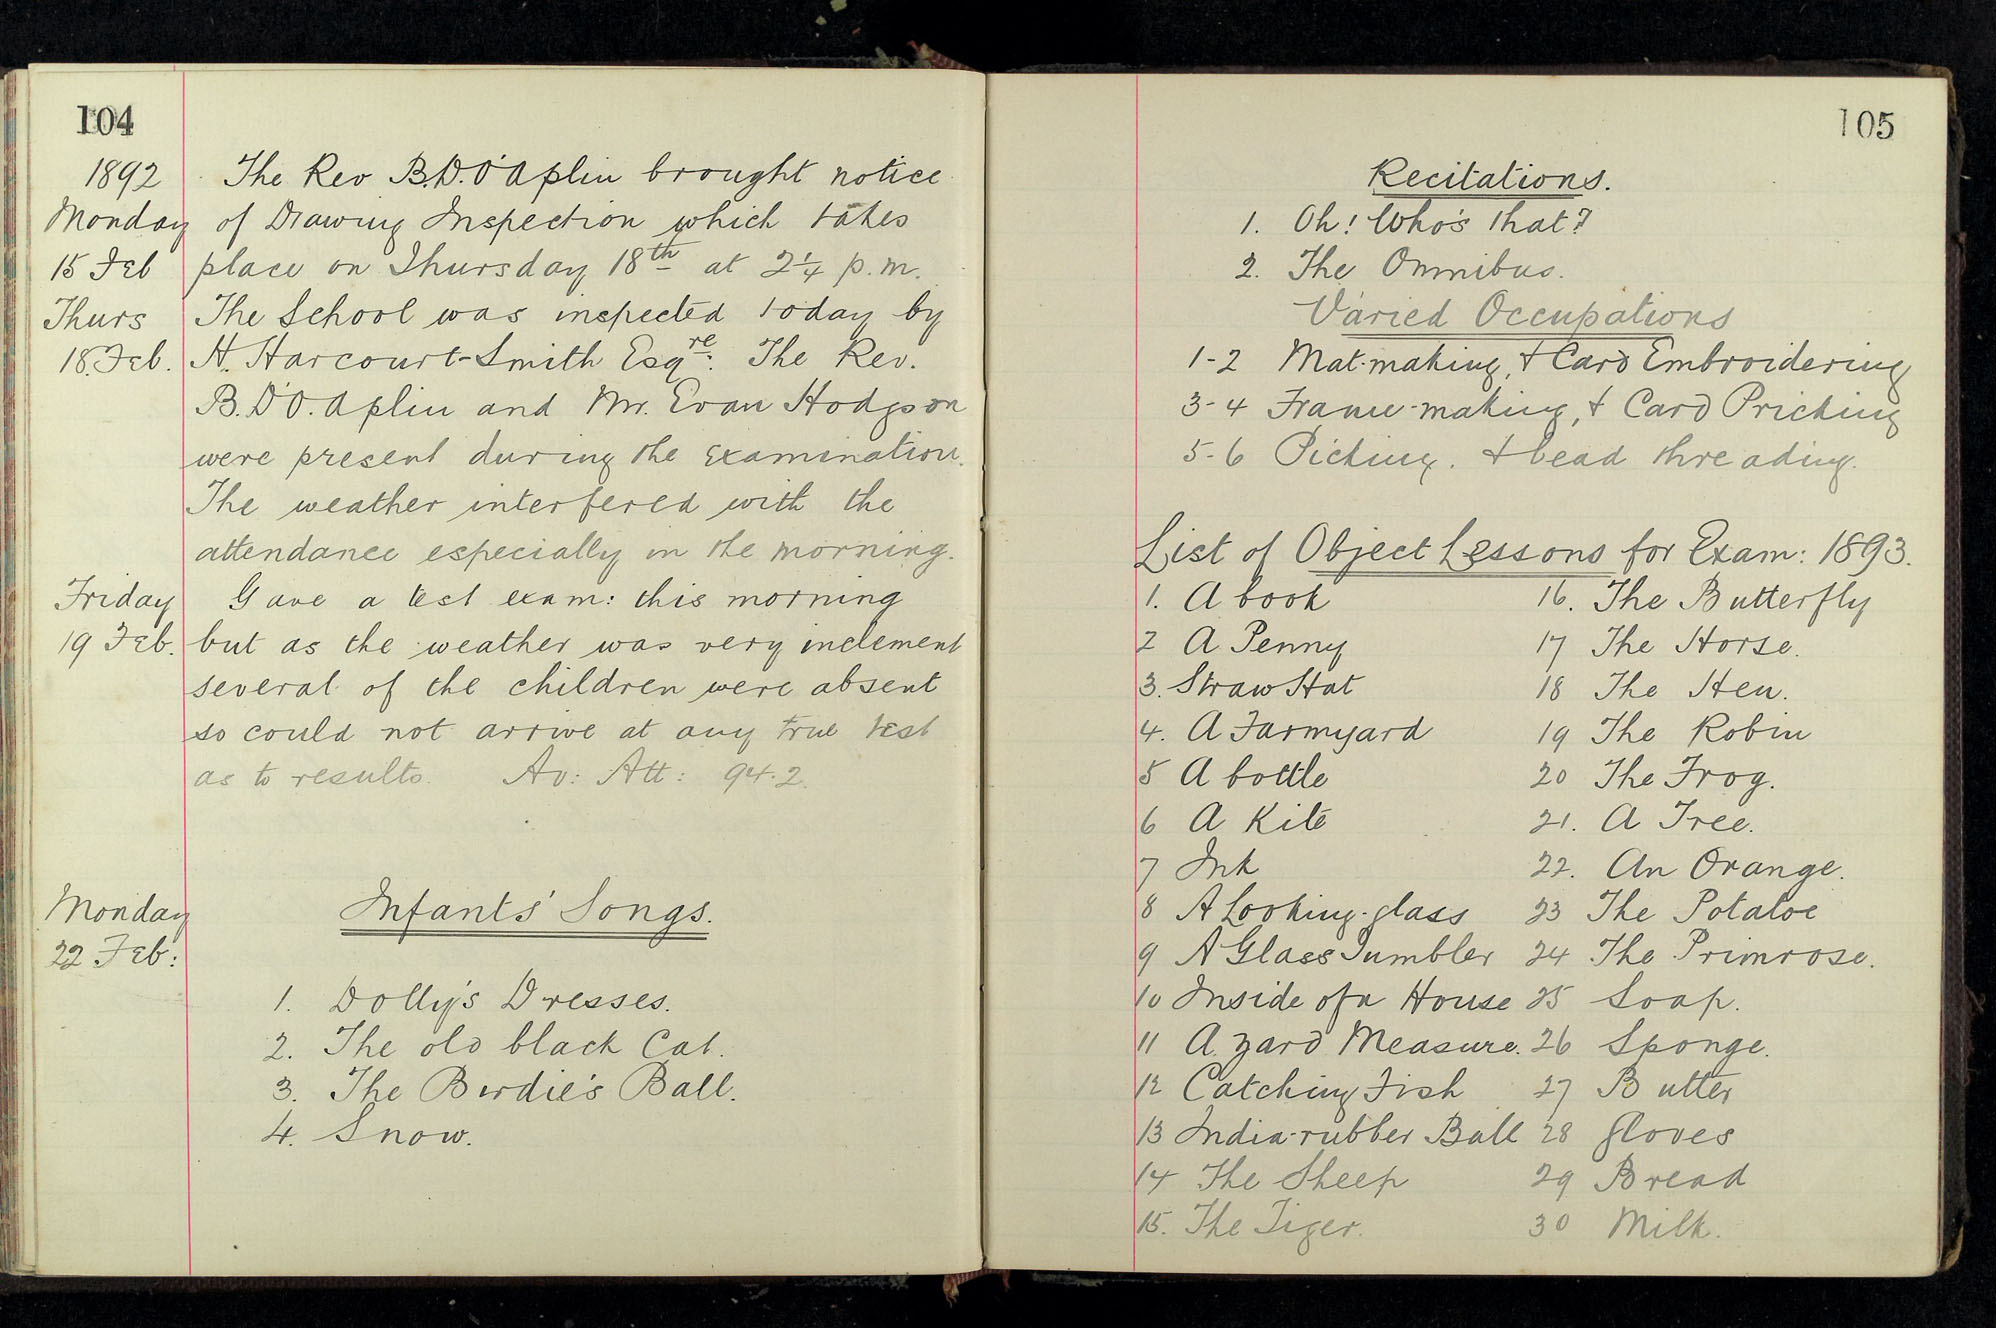 104
1892 The Rev B.D.O'Aplin brought notice
Monday of Drawing Inspection which takes
15 Feb place on Thursday 18th at 2¼ p.m.
Thurs The School was inspected today by
18. Feb. H. Harcourt-Smith Esqre: The Rev.
B.D'O. Aplin and Mr. Evan Hodgson
were present during the Examination.
The weather interfered with the
attendance especially in the morning.
Friday Gave a test exam: this morning
19 Feb. but as the weather was very inclement
several of the children were absent
so could not arrive at any true test
as to results. Av: Att: 94.2
Monday Infants' Songs.
22 Feb:
1. Dolly's Dresses.
2. The old black Cat.
3. The Birdie's Ball.
4. Snow.
105
Recitations.
1. Oh! Who's that?
2. The Omnibus.
Varied Occupations
1-2 Mat-making, & Card Embroidering
3-4 Frame-making, & Card Pricking
5-6 Picking. & bead threading.
List of Object Lessons for Exam: 1893.
1. A book
2 A Penny
3. Straw Hat
4. A Farmyard
5 A bottle
6 A Kite
7 Ink
8 A Looking-glass
9 A Glass Tumbler
10 Inside of a House
11 A yard Measure.
12 Catching Fish
13 India-rubber Ball
14 The Sheep
15. The Tiger.
16. The Butterfly
17 The Horse.
18 The Hen.
19 The Robin
20 The Frog.
21. A Tree.
22. An Orange.
23 The Potatoe
24 The Primrose.
25 Soap.
26 Sponge.
27 Butter
28 Gloves
29 Bread
30 Milk.